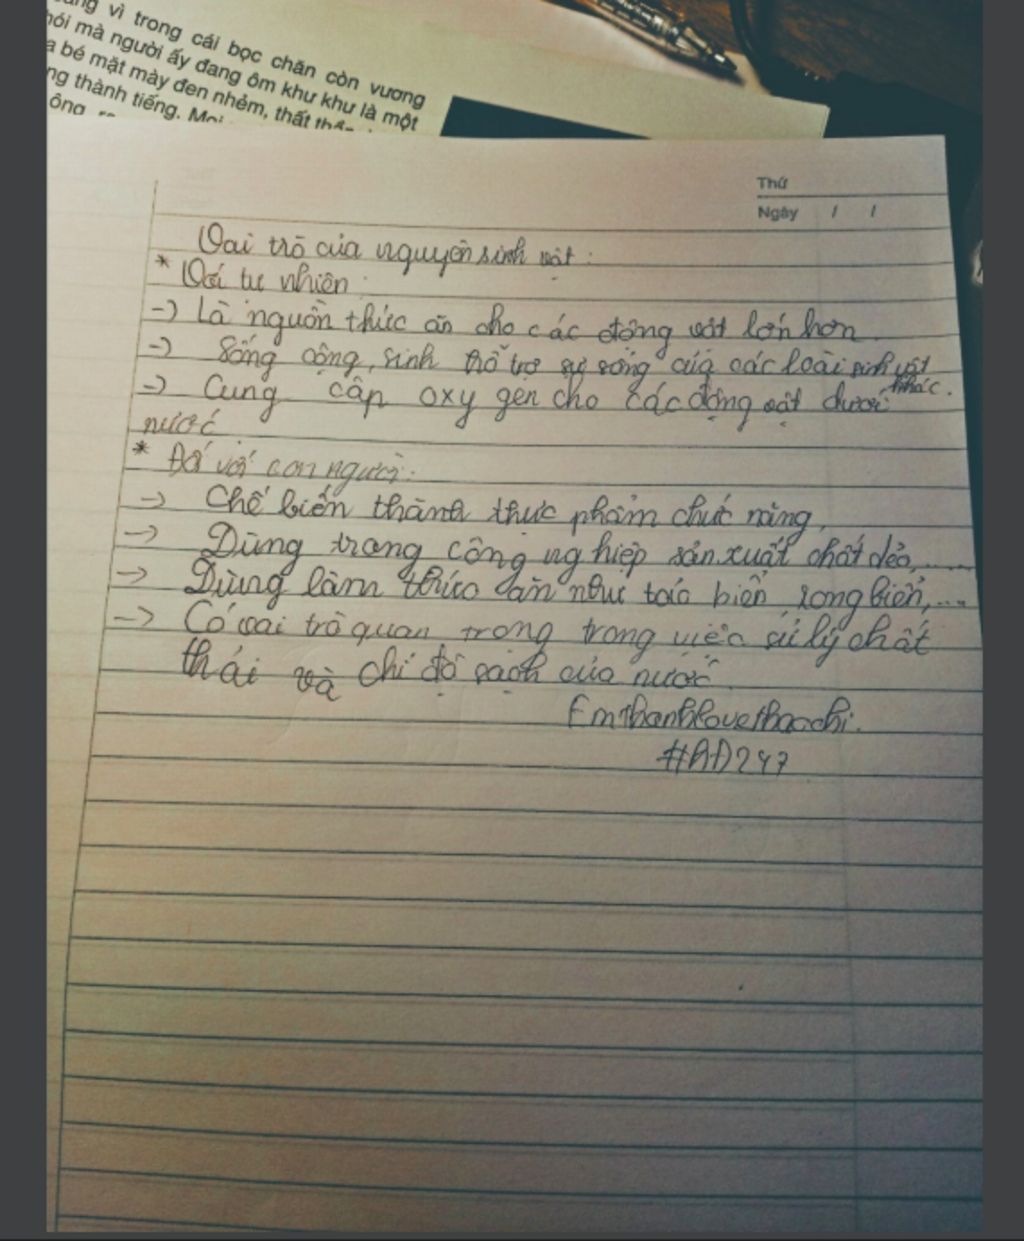 vì trong cái bọc chăn còn vương
mà người ấy đang ôm khư khư là một
bé mặt mày đen nhẻm, thất
thành tiếng.
ông
Thứ
Ngày / /
Vai trò của nguyên sinh vật :
* Với tự nhiên :
-) Là nguồn thức ăn cho các động vật lớn hơn
-) Sống cộng sinh hỗ trợ sự sống của các loài sinh vật
khác.
-) Cung cấp oxy gen cho các động vật dưới
nước
* Đối với con người:
-> Chế biến thành thực phẩm chức năng,
-> Dùng trong công nghiệp sản xuất chất dẻo,.....
-> Dùng làm thức ăn như tảo biển, rong biển,...
-> Có vai trò quan trọng trong việc sử lý chất
thải và chỉ độ sạch của nước
Emthanhlovethaochi.
247